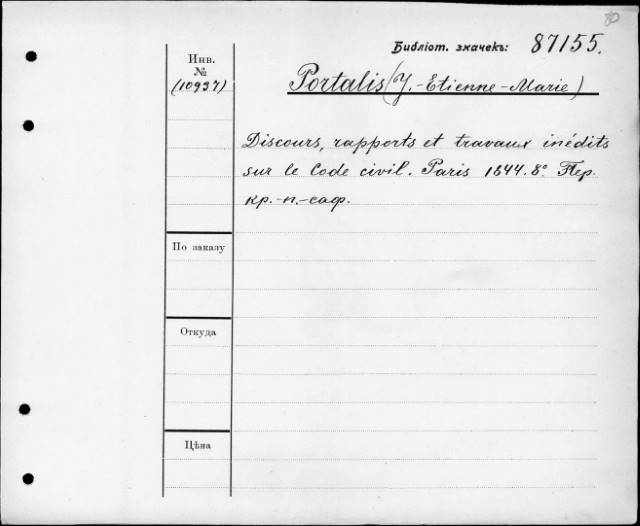 80
Библіот. значекъ: 87155.
Инв.
№
(10937)
Portalis (J.-Etienne-Marie)
Discours, rapports et travaux inédits
sur le Code civil. Paris 1844. 8º. Пер.
кр.-п.-саф.
По заказу
Откуда
Цѣна